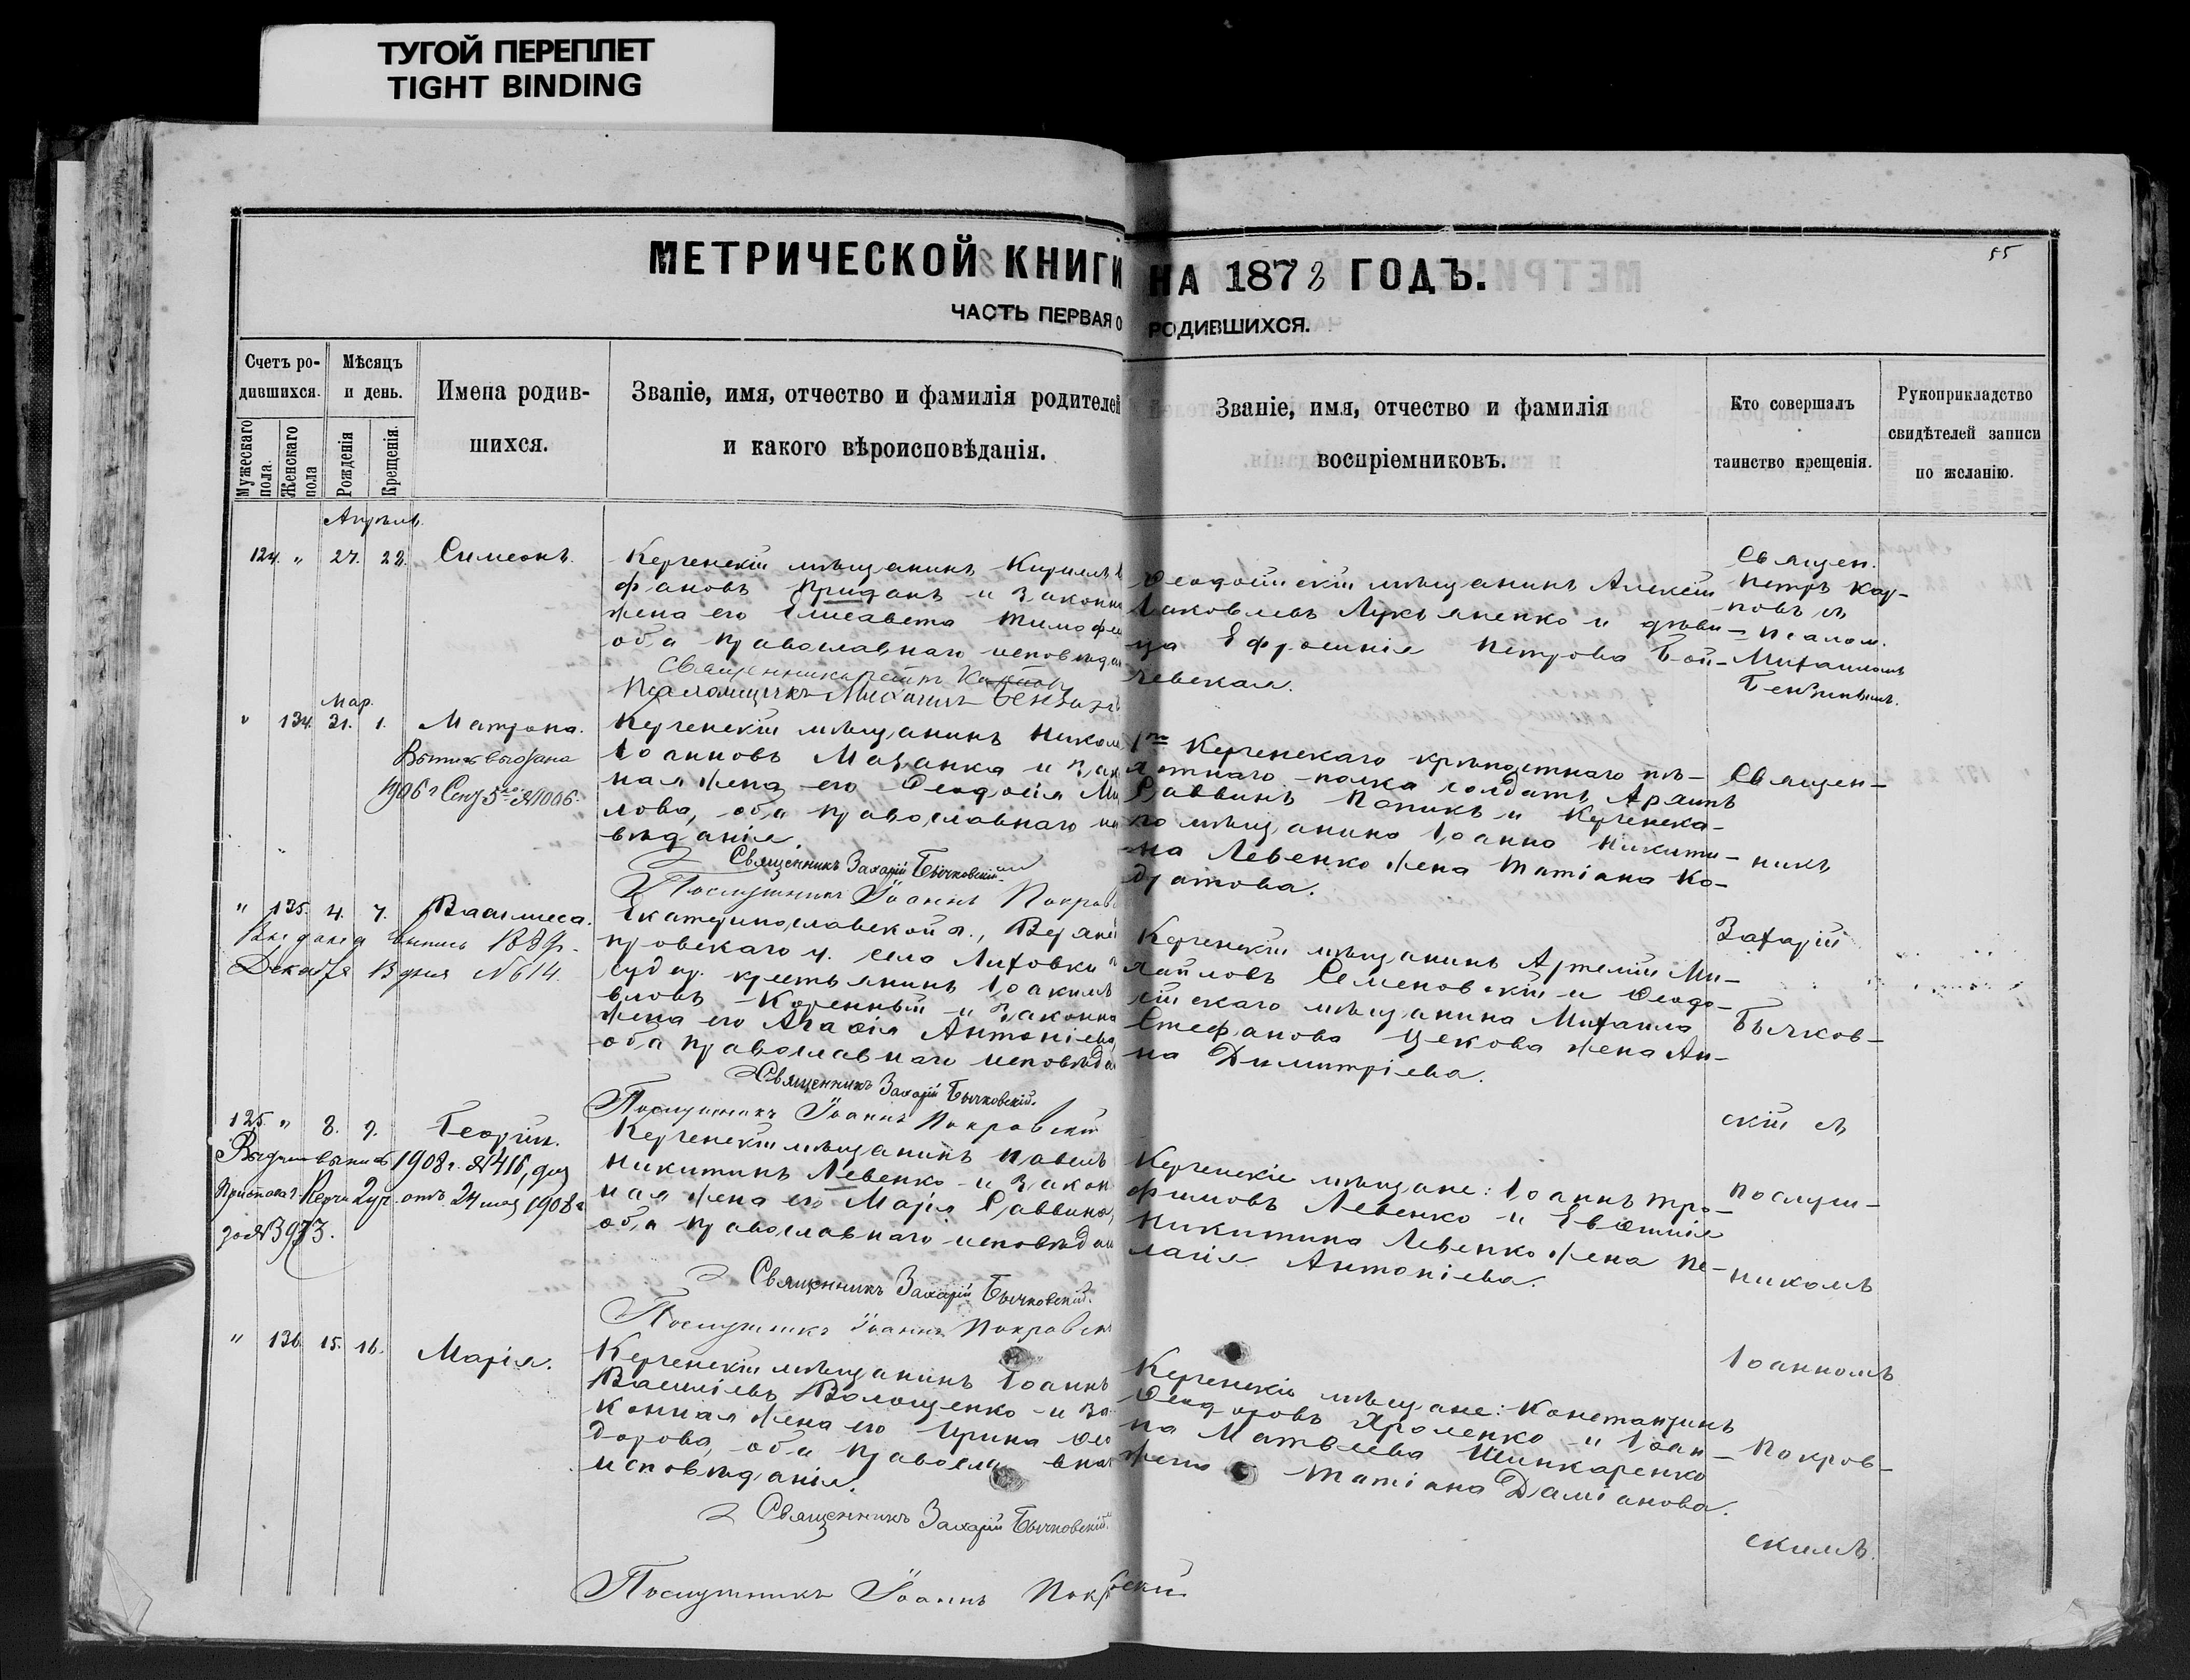 ТУГОЙ ПЕРЕПЛЕТ
TIGHT BINDING
55
МЕТРИЧЕСКОЙ КНИГИ НА 1873 ГОДЪ.
ЧАСТЬ ПЕРВАЯ О РОДИВШИХСЯ.
Счетъ ро-
дившихся.
Мужескаго пола.
Женскаго пола
Мѣсяцъ
и день.
Рожденія
Крещенія.
Имена родив-
шихся.
Званіе, имя, отчество и фамилія родителей
и какого вѣроисповѣданія.
Званіе, имя, отчество и фамилія
воспріемниковъ.
Кто совершалъ
таинство крещенія.
Рукоприкладство
свидѣтелей записи
по желанію.
Апрѣль
124. " 27. 28. Симеонъ.
Керченскій мѣщанинъ Кириллъ
фановъ и законн
жена его Елисавета Тимофе
оба православнаго исповѣдан
Священникъ Петръ
Псаломщикъ Михаилъ
Ѳеодосійскій мѣщанинъ Алексій
Іаковлевъ Лукьяненко и дѣви-
ца Ефросинія Петрова Бой-
чевская.
Священ.
Петръ Кар-
повъ съ
псалом.
Михаиломъ
Мар.
" 134. 31. 1. Матрона.
Выпись выдана
1906 г Сент 5го №1006.
Керченскій мѣщанинъ Никол
Іоанновъ Мазанка и зак
ная жена его Ѳеодосія Ми
лова, оба православнаго ис
вѣданія.
Священникъ Захарій Бычковскій
Послушникъ Іоаннъ Покров
1го Керченскаго крѣпостнаго пѣ-
хотнаго полка солдатъ
Саввинъ Попикъ и Керченска-
го мѣщанина Іоанна Никити-
на Левенко жена Татіана Ко-
дратова.
Священ-
никъ
" 135. 4. 7. Василиса.
Выдана выпись 188
Декабря 13 дня №614.
Екатеринославской г., Верхне
провскаго у. села Лиховки
судар. крестьянинъ Іоакимъ
вловъ Коренный и законна
жена его Агаѳія Антоніева,
оба православнаго исповѣда
Священникъ Захарій Бычковскій.
Послушникъ Іоаннъ Покровскій
Керченскій мѣщанинъ Артемій Ми-
хайловъ Семеновскій и Ѳеодо-
сійскаго мѣщанина Михаила
Стефанова Цекова жена Ан-
на Димитріева.
Захарій
Бычков-
125. " 8. 9. Георгій.
выпись 1908 г. №416, для
Пристава г. Керчи 2 уч. отъ 24 мая 1908 г
за №3973.
Керченскій мѣщанинъ Павелъ
Никитинъ Левенко и закон
ная жена его Марія Саввина,
оба православнаго исповѣдан
Священникъ Захарій Бычковскій.
Послушникъ Іоаннъ Покровск
Керченскіе мѣщане: Іоаннъ Тро-
фимовъ Левенко и Евѳимія
Никитина Левенко жена Пе-
лагія Антоніева.
скій съ
послуш-
никомъ
" 136. 15. 16. Марія.
Керченскій мѣщанинъ Іоаннъ
Василіевъ Волощенко и за
конная жена его Ирина Ѳео
дорова, оба православна
исповѣданія.
Священникъ Захарій Бычковскій
Послушникъ Іоаннъ Покровскій
Керченскіе мѣщане: Константинъ
Ѳеодоровъ Хроленко и Іоан-
на Матвѣева Шинкаренко
жена Татіана Даміанова.
Іоанномъ
Покров-
скимъ.